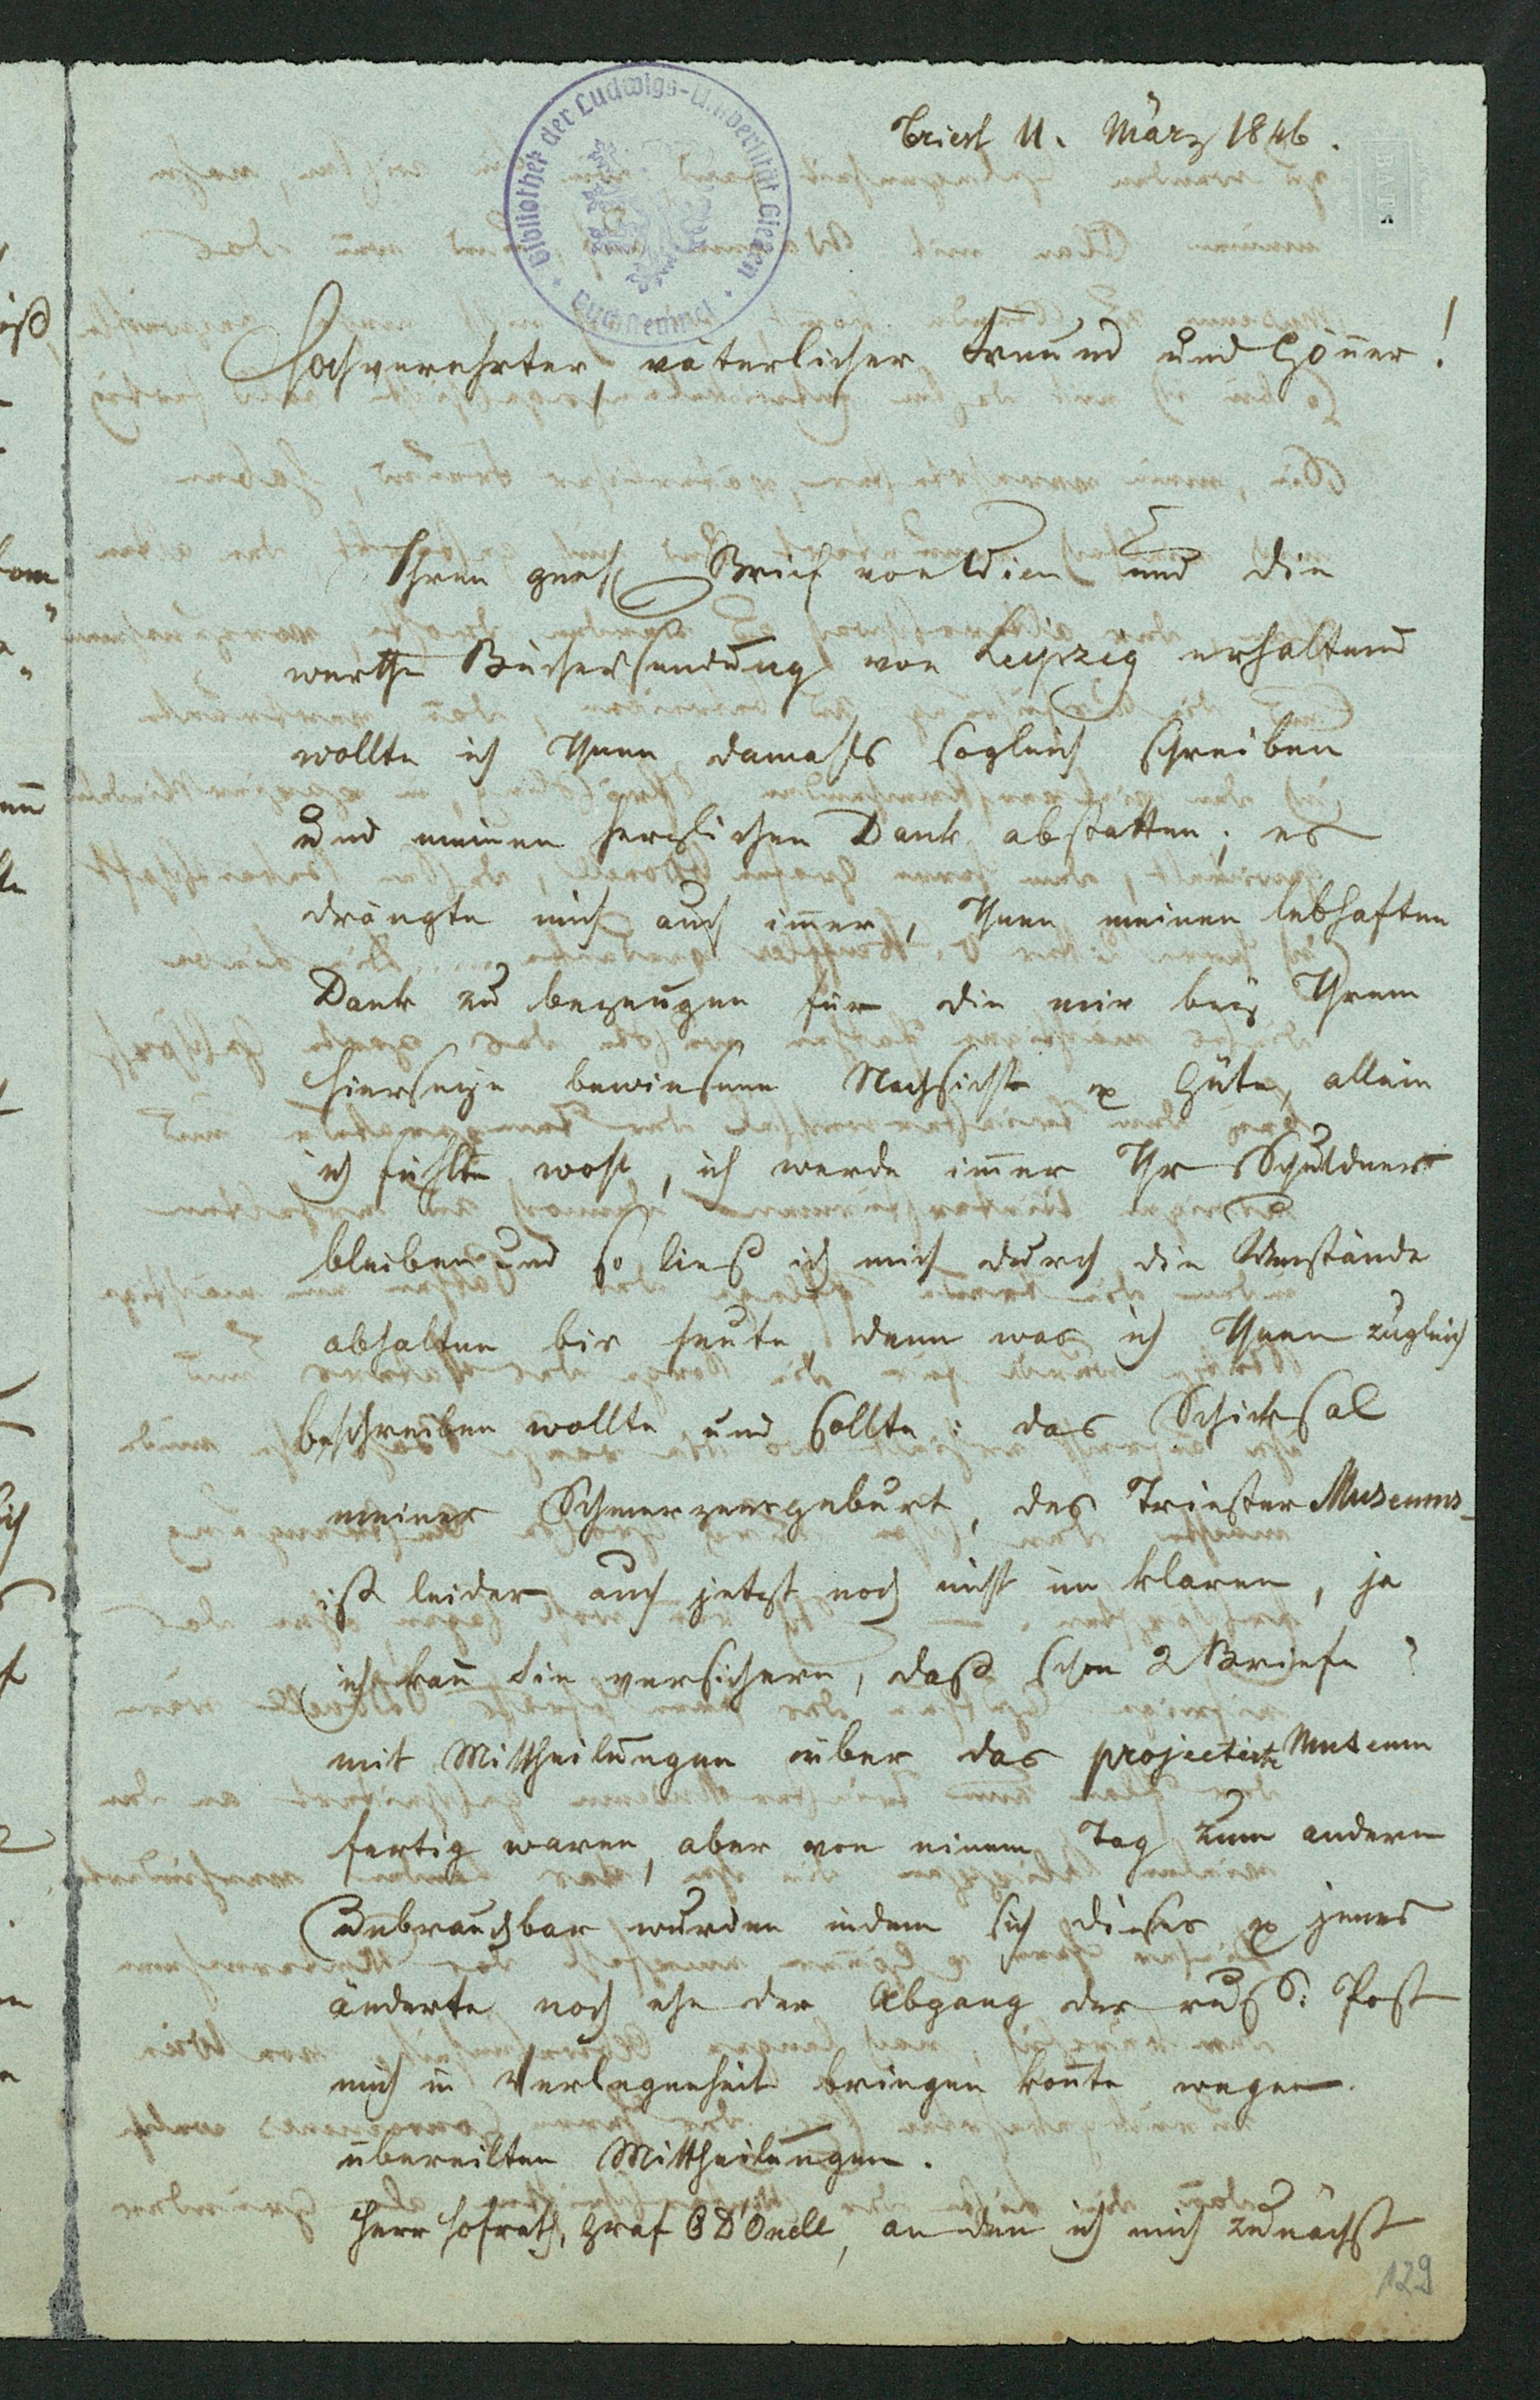 Triest 11. März 1846.
Bibliothek der Ludwigs-Universität Giessen
Hochverehrter, väterlicher Freund und Göñer!
Ihren Brief von Wien und die
werthe Büchersendung von Leipzig erhaltend
wollte ich Ihnen damahls sogleich schreiben
und meinen herzlichen Dank abstatten; es
drängte mich auch im̃er, Ihnen meinen lebhaften
Dank zu bezeugen für die mir bey Ihrem
Hierseyn bewiesene Nachsicht & Güte, allein
ich fühlte wohl, ich werde im̃er Ihr Schuldner
bleiben und so ließ ich mich durch die Umstände
abhalten bis heute, denn was ich Ihnen zugleich
beschreiben wollte und sollte: das Schicksal
meiner Schmerzensgeburt, des Triester Museums
ist leider auch jetzt noch nicht im klaren, ja
ich kañ Sie versichern, daß schon 2 Briefe
mit Mittheilungen über das projectirte Museum
fertig waren, aber von einem Tag zum andern
unbrauchbar wurden indem sich dieses & jenes
änderte noch ehe der Abgang der Post
mich in Verlegenheit bringen koñte wegen
übereilten Mittheilungen.
Herr Hofrath, Graf O'Donell, an den ich mich zunächst
129